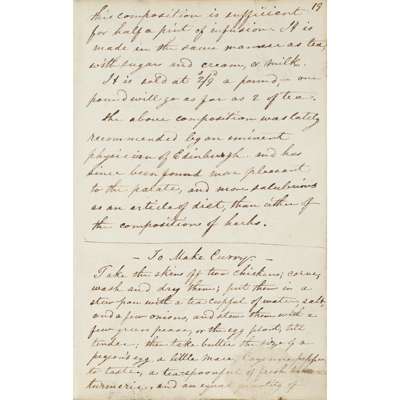 19
this composition is sufficient
for half a pint of infusion. It is
made in the same manner as tea,
with sugar and cream, or milk.
It is sold at 2/9 a pound, – one
pound will go as far as 2 of tea.
The above composition was lately
recommended by an eminent
physician of Edinburgh and has
since been found more pleasant
to the palate, and more salubrious
as an article of diet, than either of
the compositions of herbs.
– To Make Curry –
Take the skins of two chickens, carve,
wash and dry them; put them in a
stew pan with a tea cupful of water, salt
and a few onions, and stew them with a
few green pease, or the egg plant, till
tender; then take butter the size of a
pegeons egg a little mace, Cayenne pepper
to taste, a teaspoonful of fresh
turmeric, and an equal quantity of